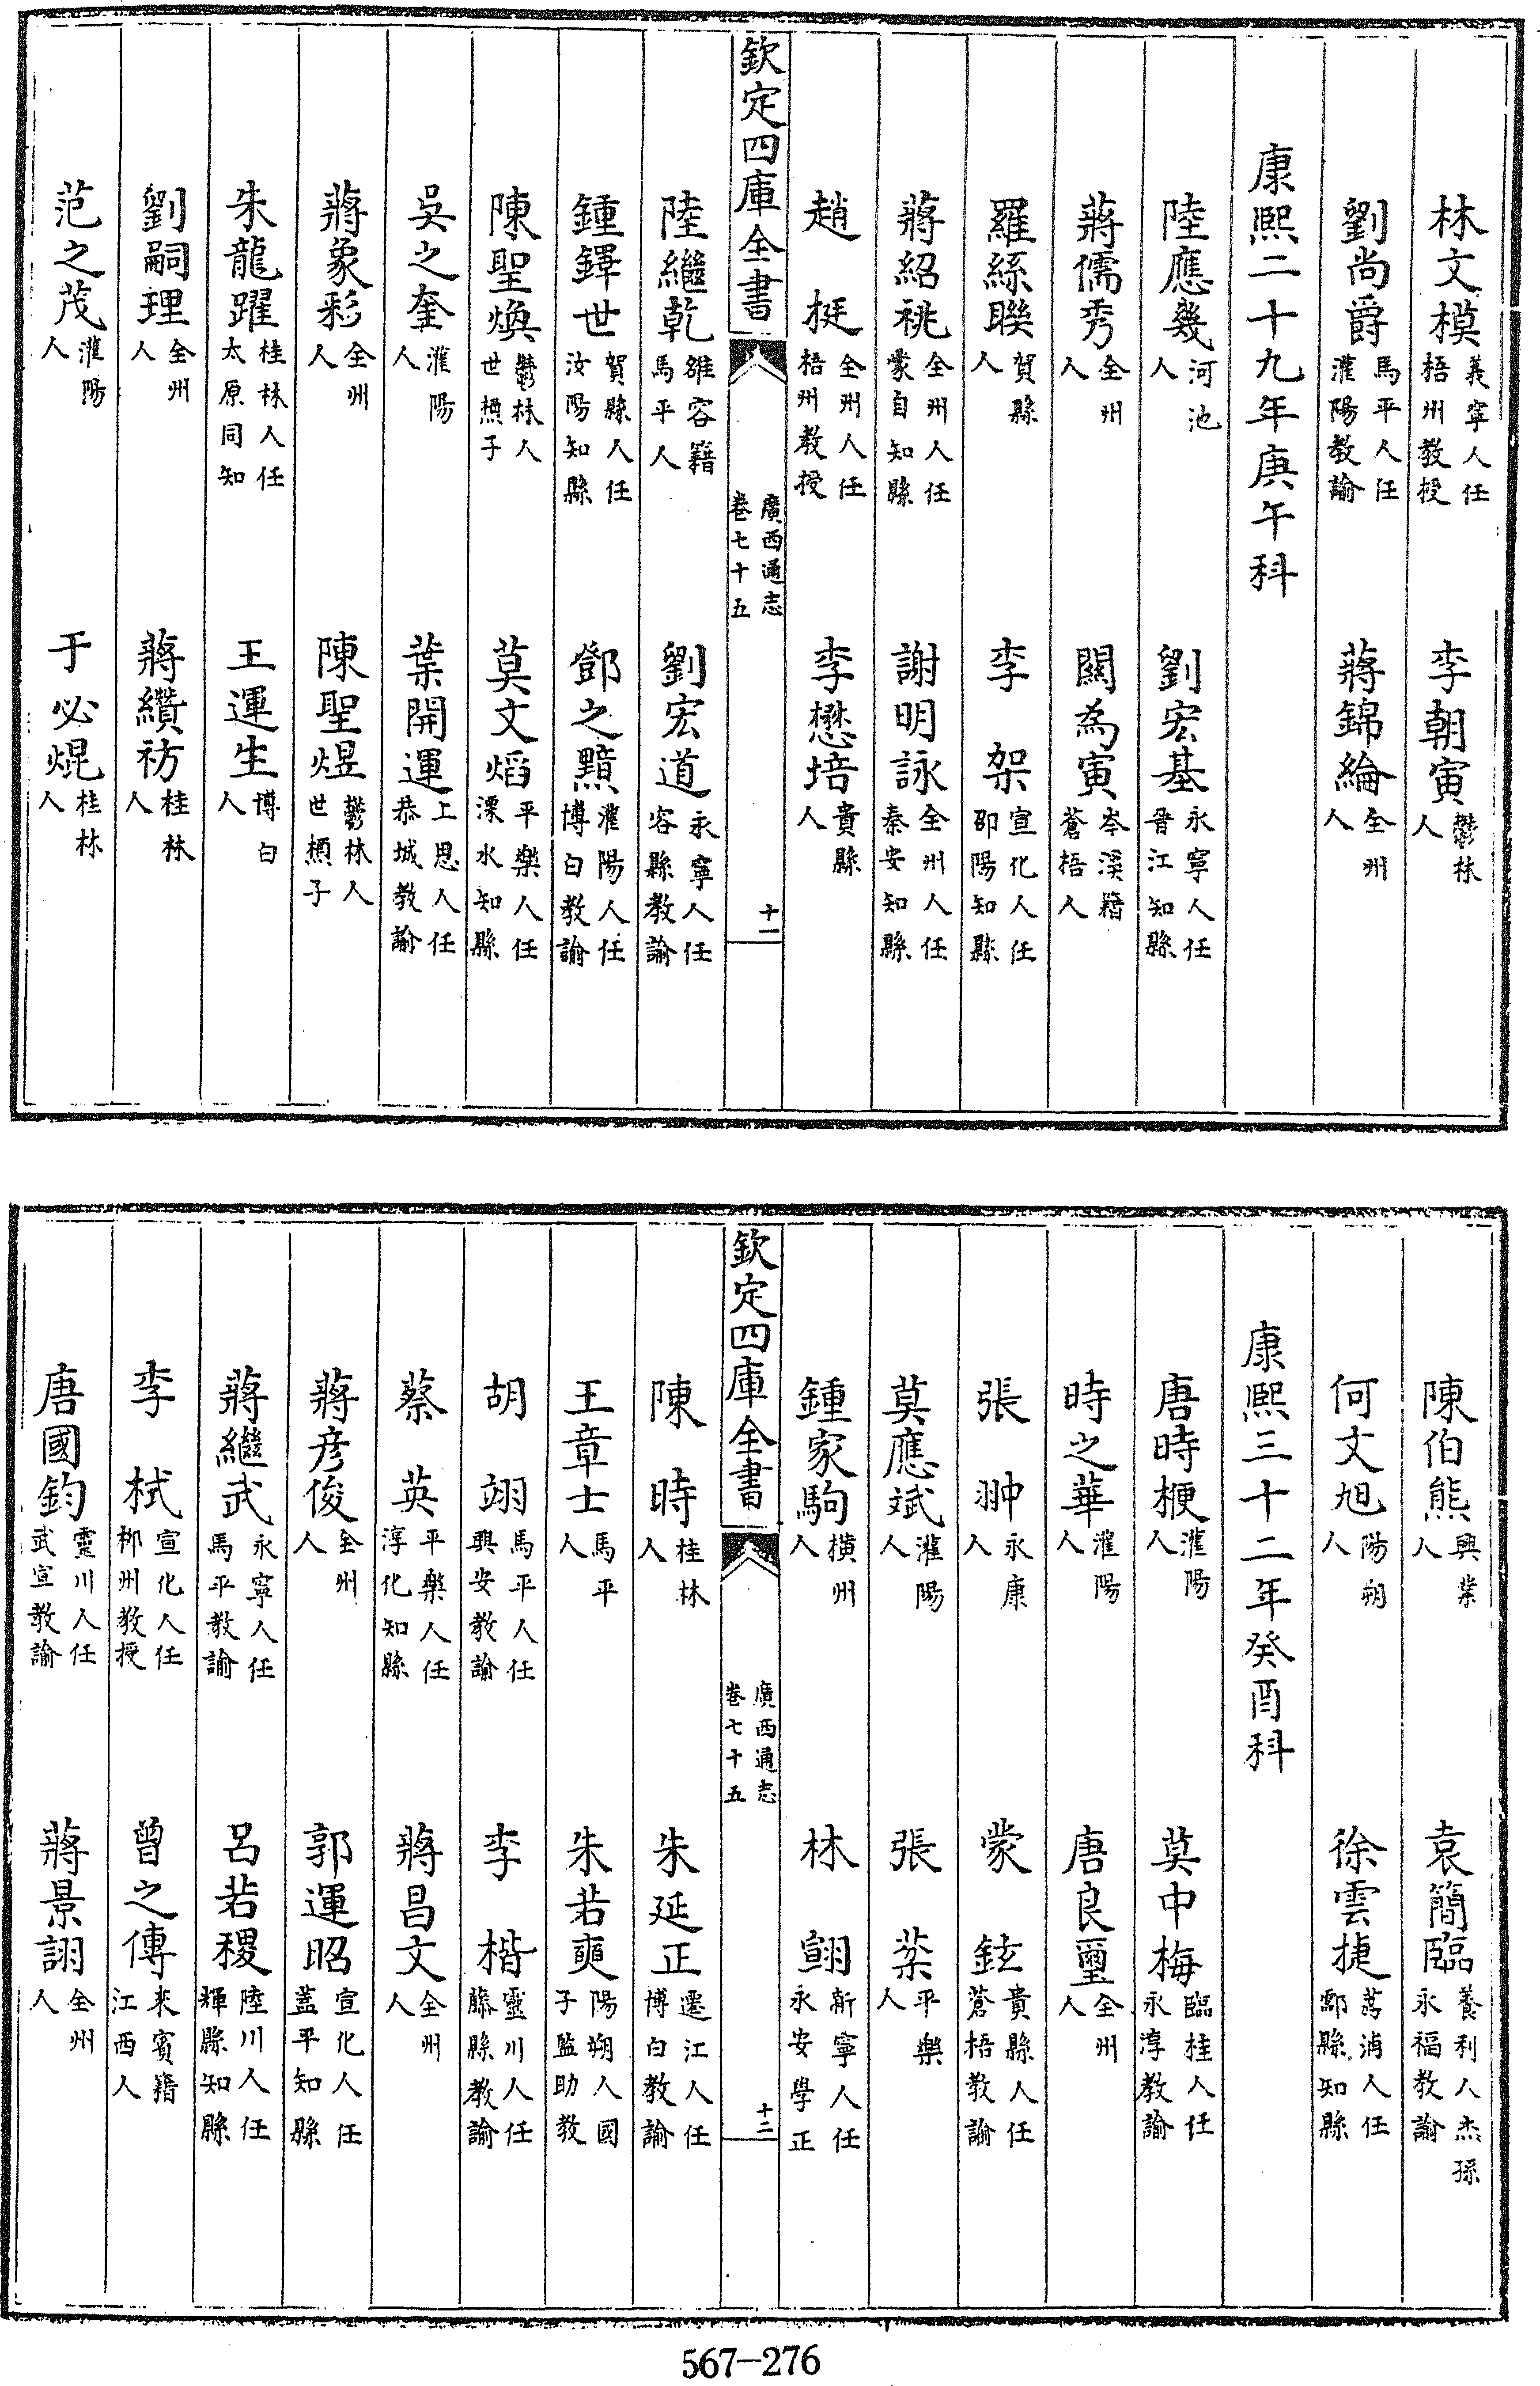 林文模義寧人任梧州教授 李朝寅鬱林人
劉尚爵馬平人任灌陽教諭 蔣錦綸全州人
康熙二十九年庚午科
陸應幾河池人 劉宏基永寧人任晉江知縣
蔣儒秀全州人 關為寅岑溪籍蒼梧人
羅絲聯賀縣人 李架宣化人任邵陽知縣
蔣紹祧全州人任蒙自知縣 謝明詠全州人任秦安知縣
趙挺全州人任梧州教授 李懋培貴縣人
欽定四庫全書 廣西通志卷七十五 十一
陸繼乾雒容籍馬平人 劉宏道永寧人任容縣教諭
鍾鐸世賀縣人任汝陽知縣 鄧之黰灌陽人任博白教諭
陳聖煥鬱林人世櫄子 莫文熖平樂人任溧水知縣
吳之奎灌陽人 葉開運上思人任恭城教諭
蔣象彩全州人 陳聖煜鬱林人世櫄子
朱龍躍桂林人任太原同知 王運生博白人
劉嗣理全州人 蔣纘祊桂林人
范之茂灌陽人 于必焜桂林人
陳伯熊興業人 袁簡臨養利人杰孫永福教諭
何文旭陽朔人 徐雲捷荔浦人任酃縣知縣
康熙三十二年癸酉科
唐時梗灌陽人 莫中梅臨桂人任永淳教諭
時之華灌陽人 唐良璽全州人
張翀永康人 蒙鉉貴縣人任蒼梧教諭
莫應斌灌陽人 張蘂平樂人
鍾家駒橫州人 林翺新寧人任永安學正
欽定四庫全書 廣西通志卷七十五 十二
陳時桂林人 朱延正遷江人任博白教諭
王章士馬平人 朱若奭陽朔人國子監助教
胡翊馬平人任興安教諭 李楷靈川人任藤縣教諭
蔡英平樂人任淳化知縣 蔣昌文全州人
蔣彥俊全州人 郭運昭宣化人任蓋平知縣
蔣繼武永寧人任馬平教諭 呂若稷陸川人任輝縣知縣
李栻宣化人任郴州教授 曾之傳來賓籍江西人
唐國鈞靈川人任武宣教諭 蔣景詡全州人
567—276